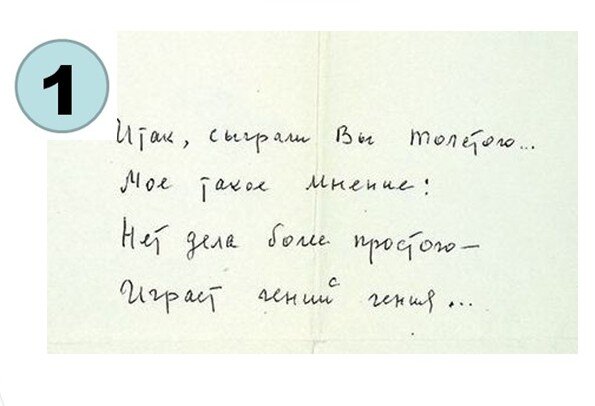 1
Итак, сыграли Вы Толстого...
Мое такое мнение:
Нет дела более простого —
Играет гений с гения...